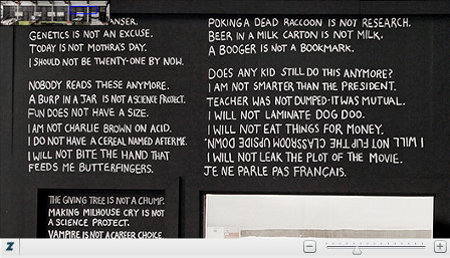 GENETICS IS NOT AN EXCUSE.
TODAY IS NOT MOTHRA'S DAY.
I SHOULD NOT BE TWENTY-ONE BY NOW.
NOBODY READS THESE ANYMORE.
A BURP IN A JAR IS NOT A SCIENCE PROJECT.
FUN DOES NOT HAVE A SIZE.
I AM NOT CHARLIE BROWN ON ACID.
I DO NOT HAVE A CEREAL NAMED AFTER ME.
I WILL NOT BITE THE HAND THAT
FEEDS ME BUTTERFINGERS.
THE GIVING TREE IS NOT A CHUMP.
MAKING MILHOUSE CRY IS NOT
A SCIENCE PROJECT.
VAMPIRE IS NOT A CAREER CHOICE
POKING A DEAD RACCOON IS NOT RESEARCH.
BEER IN A MILK CARTON IS NOT MILK.
A BOOGER IS NOT A BOOKMARK.
DOES ANY KID STILL DO THIS ANYMORE?
I AM NOT SMARTER THAN THE PRESIDENT.
TEACHER WAS NOT DUMPED-IT WAS MUTUAL.
I WILL NOT LAMINATE DOG DOO.
I WILL NOT EAT THINGS FOR MONEY.
I WILL NOT THE CLASSROOM UPSIDE DOWN.
I WILL NOT LEAK THE PLOT OF THE MOVIE.
JE NE PARLE PAS FRANÇAIS.
Z